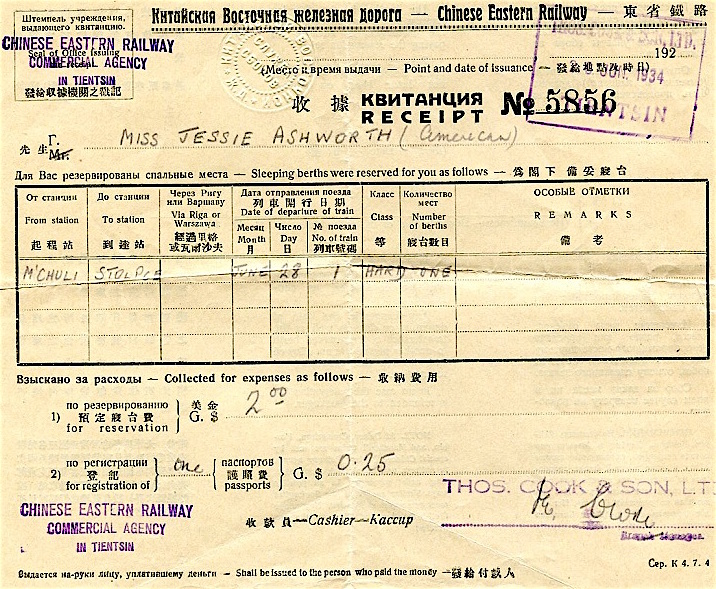 Штемпель учреждения,
выдающего квитанцию.
Китайская Восточная железная дорога — Chinese Eastern Railway — 東省鐵路
CHINESE EASTERN RAILWAY
COMMERCIAL AGENCY
IN TIENTSIN
Seal of Office issuing
發給收據機關之戳記
192
(Место и время выдачи — Point and date of issuance — 發給地點及時日)
1934
TIENTSIN
收據 КВИТАНЦИЯ
RECEIPT № 5856
先生 Г. Mr. MISS JESSIE ASHWORTH (American)
Для Вас резервированы спальные места — Sleeping berths were reserved for you as follows — 爲閣下備妥寢台
От станции
From station
起程站
До станции
To station
到達站
Через Ригу
или Варшаву
Via Riga or
Warszawa
經過里格
或瓦爾沙夫
Дата отправления поезда
列車開行日期
Date of departure of train
Месяц
Month
月
Число
Day
日
№ поезда
No. of train
列車號碼
Класс
Class
等
Количество
мест
Number
of berths
寢台數目
ОСОБЫЕ ОТМЕТКИ
REMARKS
備考
M'CHULI STOLPCE JUNE 28 1 HARD ONE
Взыскано за расходы — Collected for expenses as follows — 收納費用
1) по резервированию
預定寢台費
for reservation
美金
G. $ 2 00
2) по регистрации
登記
for registration of
one
паспортов
護照費
passports
G. $ 0.25
THOS. COOK & SON, LTD
Branch Manager.
CHINESE EASTERN RAILWAY
COMMERCIAL AGENCY
IN TIENTSIN
收款員 — Cashier — Кассир
Сер. К 4. 7. 4
Выдается на-руки лицу, уплатившему деньги — Shall be issued to the person who paid the money — 發給付款人